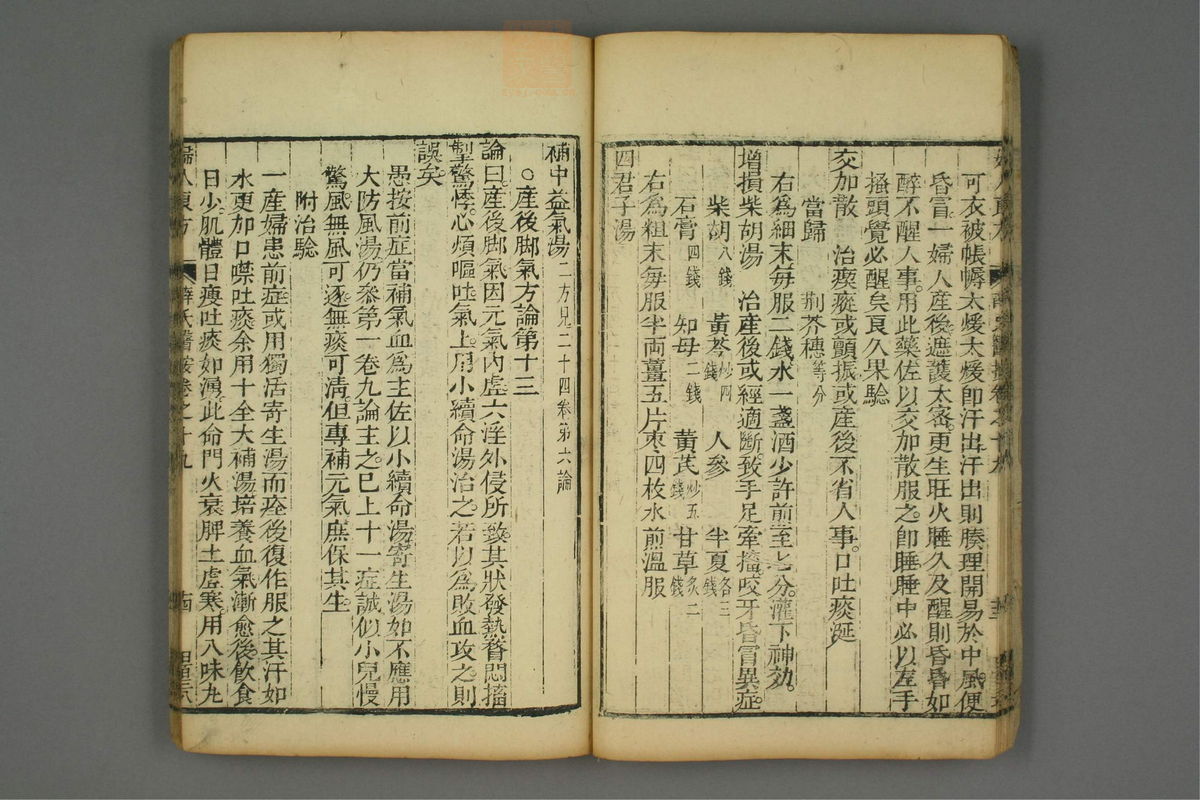 可衣被帳褥太煖太煖卽汗出汗出則腠理開易於中風便
昏冒一婦人產後遮護太密更生旺火睡久及醒則昏昏如
醉不醒人事用此藥佐以交加散服之卽睡睡中必以左手
搔頭覺必醒矣良久果驗
交加散 治瘈瘲或顫振或產後不省人事口吐痰涎
當歸 荊芥穗等分
右為細末每服二錢水一盞酒少許煎至七分灌下神効
增損柴胡湯 治產後或經適斷致手足牽搐咬牙昏冒異症
柴胡八錢 黃芩炒四錢 人參 半夏各三錢
石膏四錢 知母二錢 黃芪炒五錢 甘草炙二錢
右為粗末每服半両薑五片枣四枚水煎溫服
四君子湯
補中益氣湯二方見二十四卷第六論
○產後脚氣方論第十三
論曰產後脚氣因元氣內虛六淫外侵所致其狀發熱瞀悶搐
掣驚悸心煩嘔吐氣上用小續命湯治之若以為敗血攻之則
誤矣
愚按前症當補氣血為主佐以小續命湯寄生湯如不應用
大防風湯仍參第一卷九論主之已上十一症誠似小兒慢
驚風無風可逐無痰可清但專補元氣庶保其生
附治驗
一產婦患前症或用獨活寄生湯而痊後復作服之其汗如
水更加口噤吐痰余用十全大補湯培養血氣漸愈後飲食
日少肌體日瘦吐痰如湧此命門火衰脾土虛寒用八味丸
婦人良方 薛氏醫按卷之十九